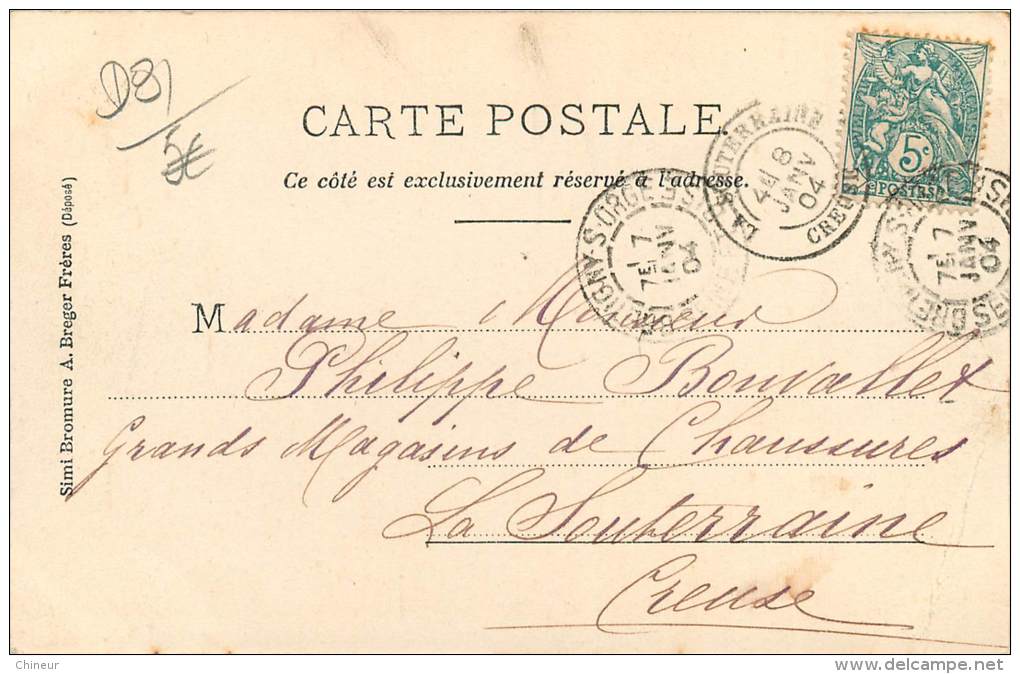 D81
5€
CARTE POSTALE
Ce côté est exclusivement réservé à l'adresse.
Simi Bromure A. Breger Frères (Déposé)
LA SOUTERRAINE
8
JANV
04
CREUSE
S-ORGE
7E 7
JANV
04
7E 7
JANV
04
5c
POSTES
Madame Monsieur
Philippe Bouvallet
Grands Magasins de Chaussures
La Souterraine
Creuse
Chineur
delcampe.net